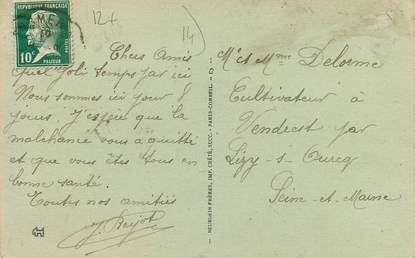 RÉPUBLIQUE FRANÇAISE
10c
PASTEUR
12+
14
Chers Amis
Quel joli temps par ici
Nous sommes ici pour 8
jours. J'espère que la
malchance vous a quitté
et que vous êtes tous en
bonne santé.
Toutes nos amitiés
NEURDEIN FRÈRES, IMP. CRÉTÉ, SUCC. - PARIS-CORBEIL
Mr et Mme Delorme
Cultivateur à
Vendrest par
Lizy-s-Ourcq
Seine-et-Marne